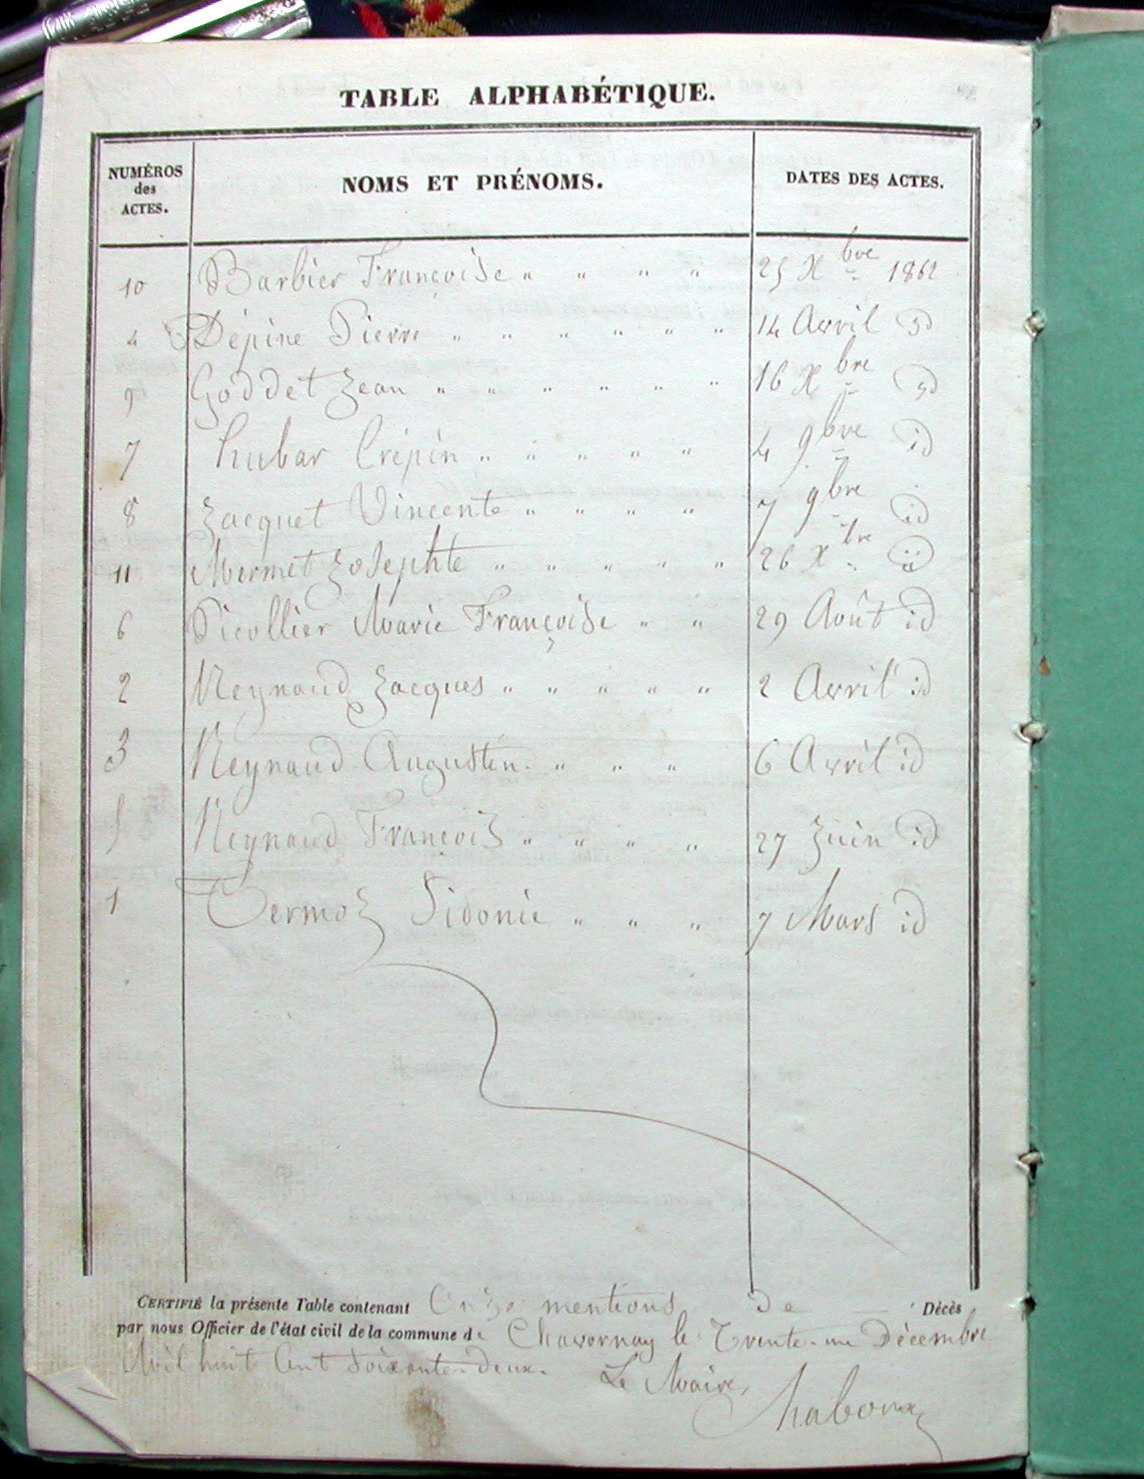 TABLE ALPHABÉTIQUE.
NUMÉROS des ACTES. NOMS ET PRÉNOMS. DATES DES ACTES.
10 Barbier Françoise " " " " 25 Xbre 1862
4 Dépine Pierre " " " " " " 14 Avril id
9 Goddet Jean " " " " " " 16 Xbre id
7 hubar Crépin " " " " " 4 9bre id
8 Jacquet Vincente " " " " 7 9bre id
11 Mermet Josephte " " " " " 26 Xbre id
6 Picollier Marie Françoise " " 29 Août id
2 Reynaud Jacques " " " " " 2 Avril id
3 Reynaud Augustin " " " 6 Avril id
5 Reynaud François " " " " 27 Juin id
1 Termoz Sidonie " " " 7 Mars id
CERTIFIÉ la présente Table contenant Onze mentions de Décès
par nous Officier de l'état civil de la commune de Chavornay le Trente-un Décembre
Mil huit Cent Soixante-Deux.
Le Maire,